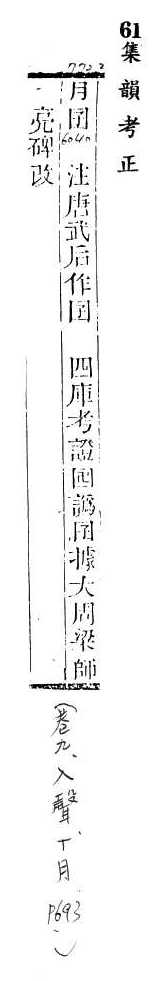 61集韻考正
7722
6040
月囝 注唐武后作囝 四庫考證囘譌囝據大周梁師
亮碑改
（卷九、入聲、十月、P693、）